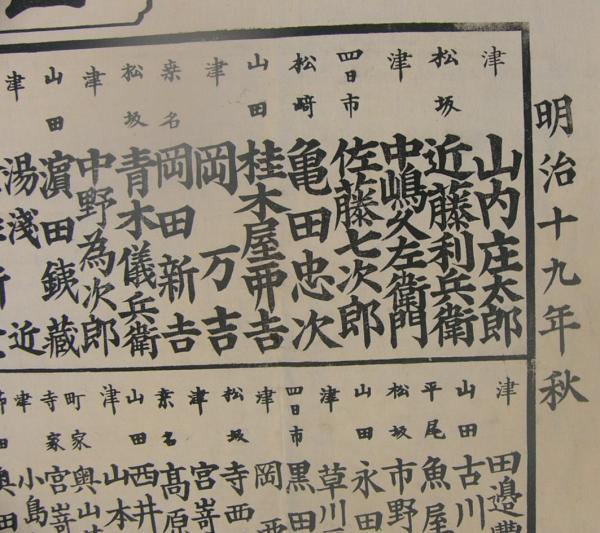 明治十九年秋
津 山内庄太郎
松坂 近藤利兵衛
津 中嶋久左衛門
四日市 佐藤七次郎
松﨑 亀田忠次
山田 桂木屋市吉
津 岡万吉
桒名 岡田新吉
松坂 青木儀兵衛
津 中野為次郎
山田 濵田銕蔵
津 湯淺近
新
津 田邉豊
山田 古川
平尾 魚屋
松坂 市野
山田 永田
津 草川
四日市 黒田
津 岡西
松坂 寺西
津 宮嵜
桒名 高原
山田 西井
津 山本
町家 奥山
寺家 宮嵜
津 小島
田 奥田